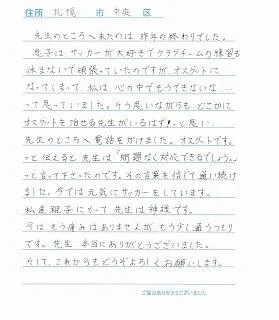 住所 札幌 市 中央 区
先生のところへ来たのは 昨年の終わりでした。
息子は、サッカーが大好きでクラブチームの練習も
休まないで頑張っていたのですが、オスグットに
なってしまって、私は、心の中でもうできないな....
って思っていました。そう思いながらも、どこかに
オスグットを治せる先生がいるはず!と思い、
先生のところへ電話をかけました。オスグットです。
っと伝えると先生は「問題なく対応できるでしょう。」
っと言って下さったのです。その言葉を信じて通い続け
ました。今では元気にサッカーをしています。
私達親子にとって、先生は神様です。
今はもう痛みはありませんがもう少し通うつもり
です。先生 本当にありがとうございました。
そして、これからもどうぞよろしくお願いします。
ご協力ありがとうございました